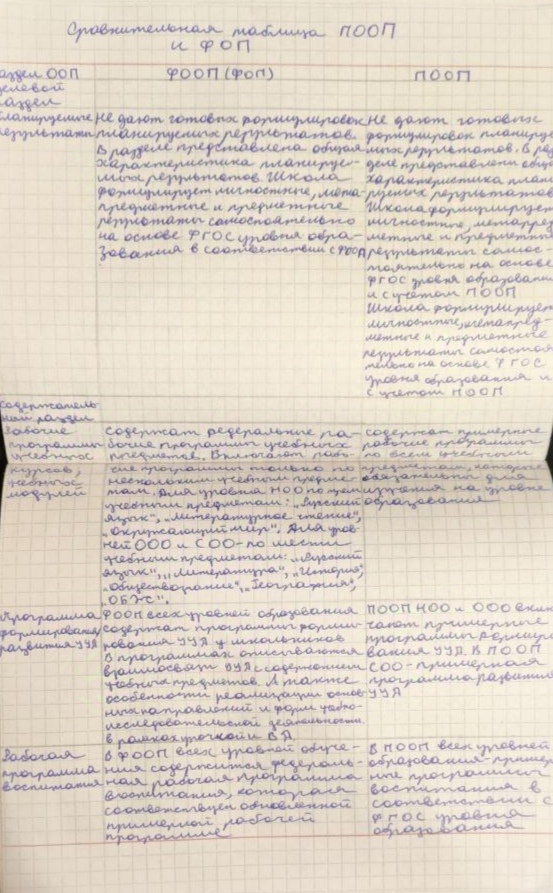 Сравнительная таблица ПООП
и ФОП
раздел ООП ФООП (ФОП) ПООП
целевой
раздел
планируемые
результаты
Не дают готовых формулировок
планируемых результатов.
В разделе представлена общая
характеристика планируе-
мых результатов. Школа
формулирует личностные, мета-
предметные и предметные
результаты самостоятельно
на основе ФГОС уровня обра-
зования в соответствии с ФООП
Не дают готовых
формулировок планируе
мых результатов. В раз
деле представлена общ
характеристика плани
руемых результатов
Школа формулирует
личностные, метапред
метные и предметные
результаты самос-
тоятельно на основе
ФГОС уровня образован
и с учетом ПООП
Школа формулирует
личностные, метапред-
метные и предметные
результаты самостоя
тельно на основе ФГОС
уровня образования и
с учетом ПООП
содержатель-
ный раздел
Рабочие
программы
учебных
курсов,
учебных
модулей
содержат федеральные ра-
бочие программы учебных
предметов. Включают рабо-
чие программы только по
нескольким учебным предме-
там. Для уровня НОО по трем
учебным предметам: "Русский
язык", "Литературное чтение",
"Окружающий мир". Для уров-
ней ООО и СОО - по шести
учебным предметам: "Русский
язык", "Литература", "История",
"Обществознание", "География",
"ОБЖ".
содержат примерные
рабочие программы
по всем учебным
предметам, которые
обязательны для
изучения на уровне
образования
Программа
формирования
развития УУД
ФООП всех уровней образования
содержат программы форми-
рования УУД у школьников
В программах описываются
взаимосвязи УУД с содержанием
учебных предметов. А также
особенности реализации основ
ных направлений и форм учебно-
исследовательской деятельности
в рамках урочной и ВД.
ПООП НОО и ООО вклю
чают примерные
программы формиро
вания УУД. В ПООП
СОО - примерная
программа развития
УУД
Рабочая
программа
воспитания
В ФООП всех уровней обуче-
ния содержится федераль-
ная рабочая программа
воспитания, которая
соответствует обновленной
примерной рабочей
программе
В ПООП всех уровней
образования - пример
ные программы
воспитания в
соответствии с
ФГОС уровня
образования